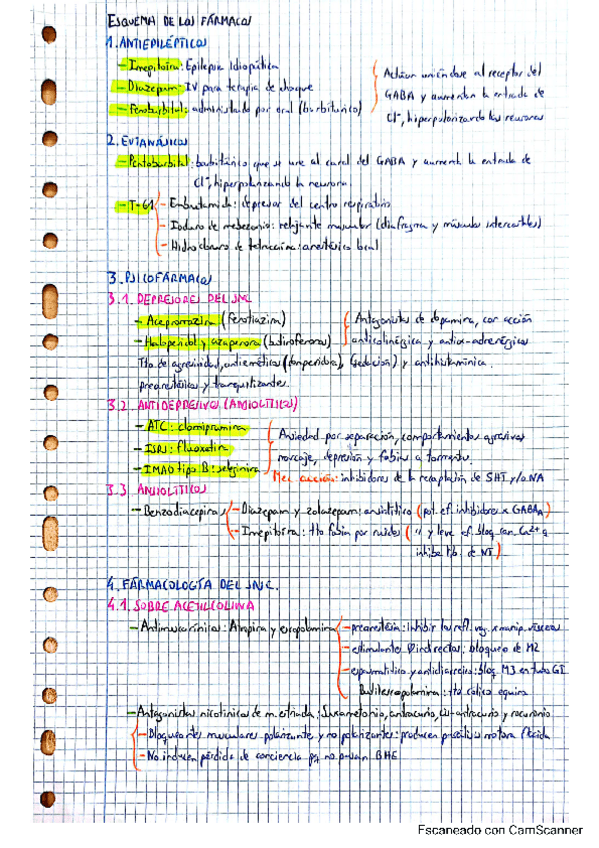 ESQUEMA DE LOS FÁRMACOS
1. ANTIEPILÉPTICOS
- Imepitoína: Epilepsia Idiopática
- Diazepam: IV para terapia de choque
- Fenobarbital: administrado por oral (barbitúrico)
Actúan uniéndose al receptor del
GABA y aumentan la entrada de
Cl-, hiperpolarizando las neuronas
2. EUTANÁSICOS
- Pentobarbital: barbitúrico que se une al canal del GABA y aumenta la entrada de
Cl-, hiperpolarizando la neurona.
- T-61 - Embutramida: depresor del centro respiratorio
- Ioduro de mebezonio: relajante muscular (diafragma y músculos intercostales)
- Hidrocloruro de tetracaína: anestésico local
3. PSICOFÁRMACOS
3.1. DEPRESORES DEL SNC
- Acepromazina (fenotiazina)
- Haloperidol y azaperona (butirofenonas)
Antagonistas de dopamina, con acción
anticolinérgica y antiα-adrenérgica
Tto de agresividad, antiemético (domperidona), (sedación) y antihistamínica.
preanestésicos y tranquilizantes.
3.2. ANTIDEPRESIVOS (ANSIOLÍTICOS)
- ATC: clomipramina
- ISRS: fluoxetina
- IMAO tipo B: seleginina
Ansiedad por separación, comportamientos agresivos
marcaje, depresión y fobias a tormentas.
Mec. acción: inhibidores de la recaptación de 5HT y/o NA
3.3. ANSIOLÍTICOS
- Benzodiacepinas - Diazepam y zolazepam: ansiolítico (pot. ef. inhibidores x GABAA)
- Imepitoína: tto fobia por ruidos ( " y leve ef. bloq. can. Ca2+ q
inhibe lib. de NT)
4. FÁRMACOLOGÍA DEL SNC.
4.1. SOBRE ACETILCOLINA
- Antimuscarínicos: Atropina y escopolamina - preanestesia: Inhibir los refl. vag. x manip. vísceras
- estimulantes indirectos: bloqueo de M2
- espasmolítico y antidiarreico: bloq. M3 en tubo GI
Butilescopolamina: tto cólico equino
- Antagonistas nicotínicos de m. estriada: Suxametonio, atracurio, cis-atracurio y rocuronio
- Bloqueantes musculares polarizantes y no polarizantes: producen parálisis motora flácida
- No inducen pérdida de conciencia pq no pasan BHE
Escaneado con CamScanner